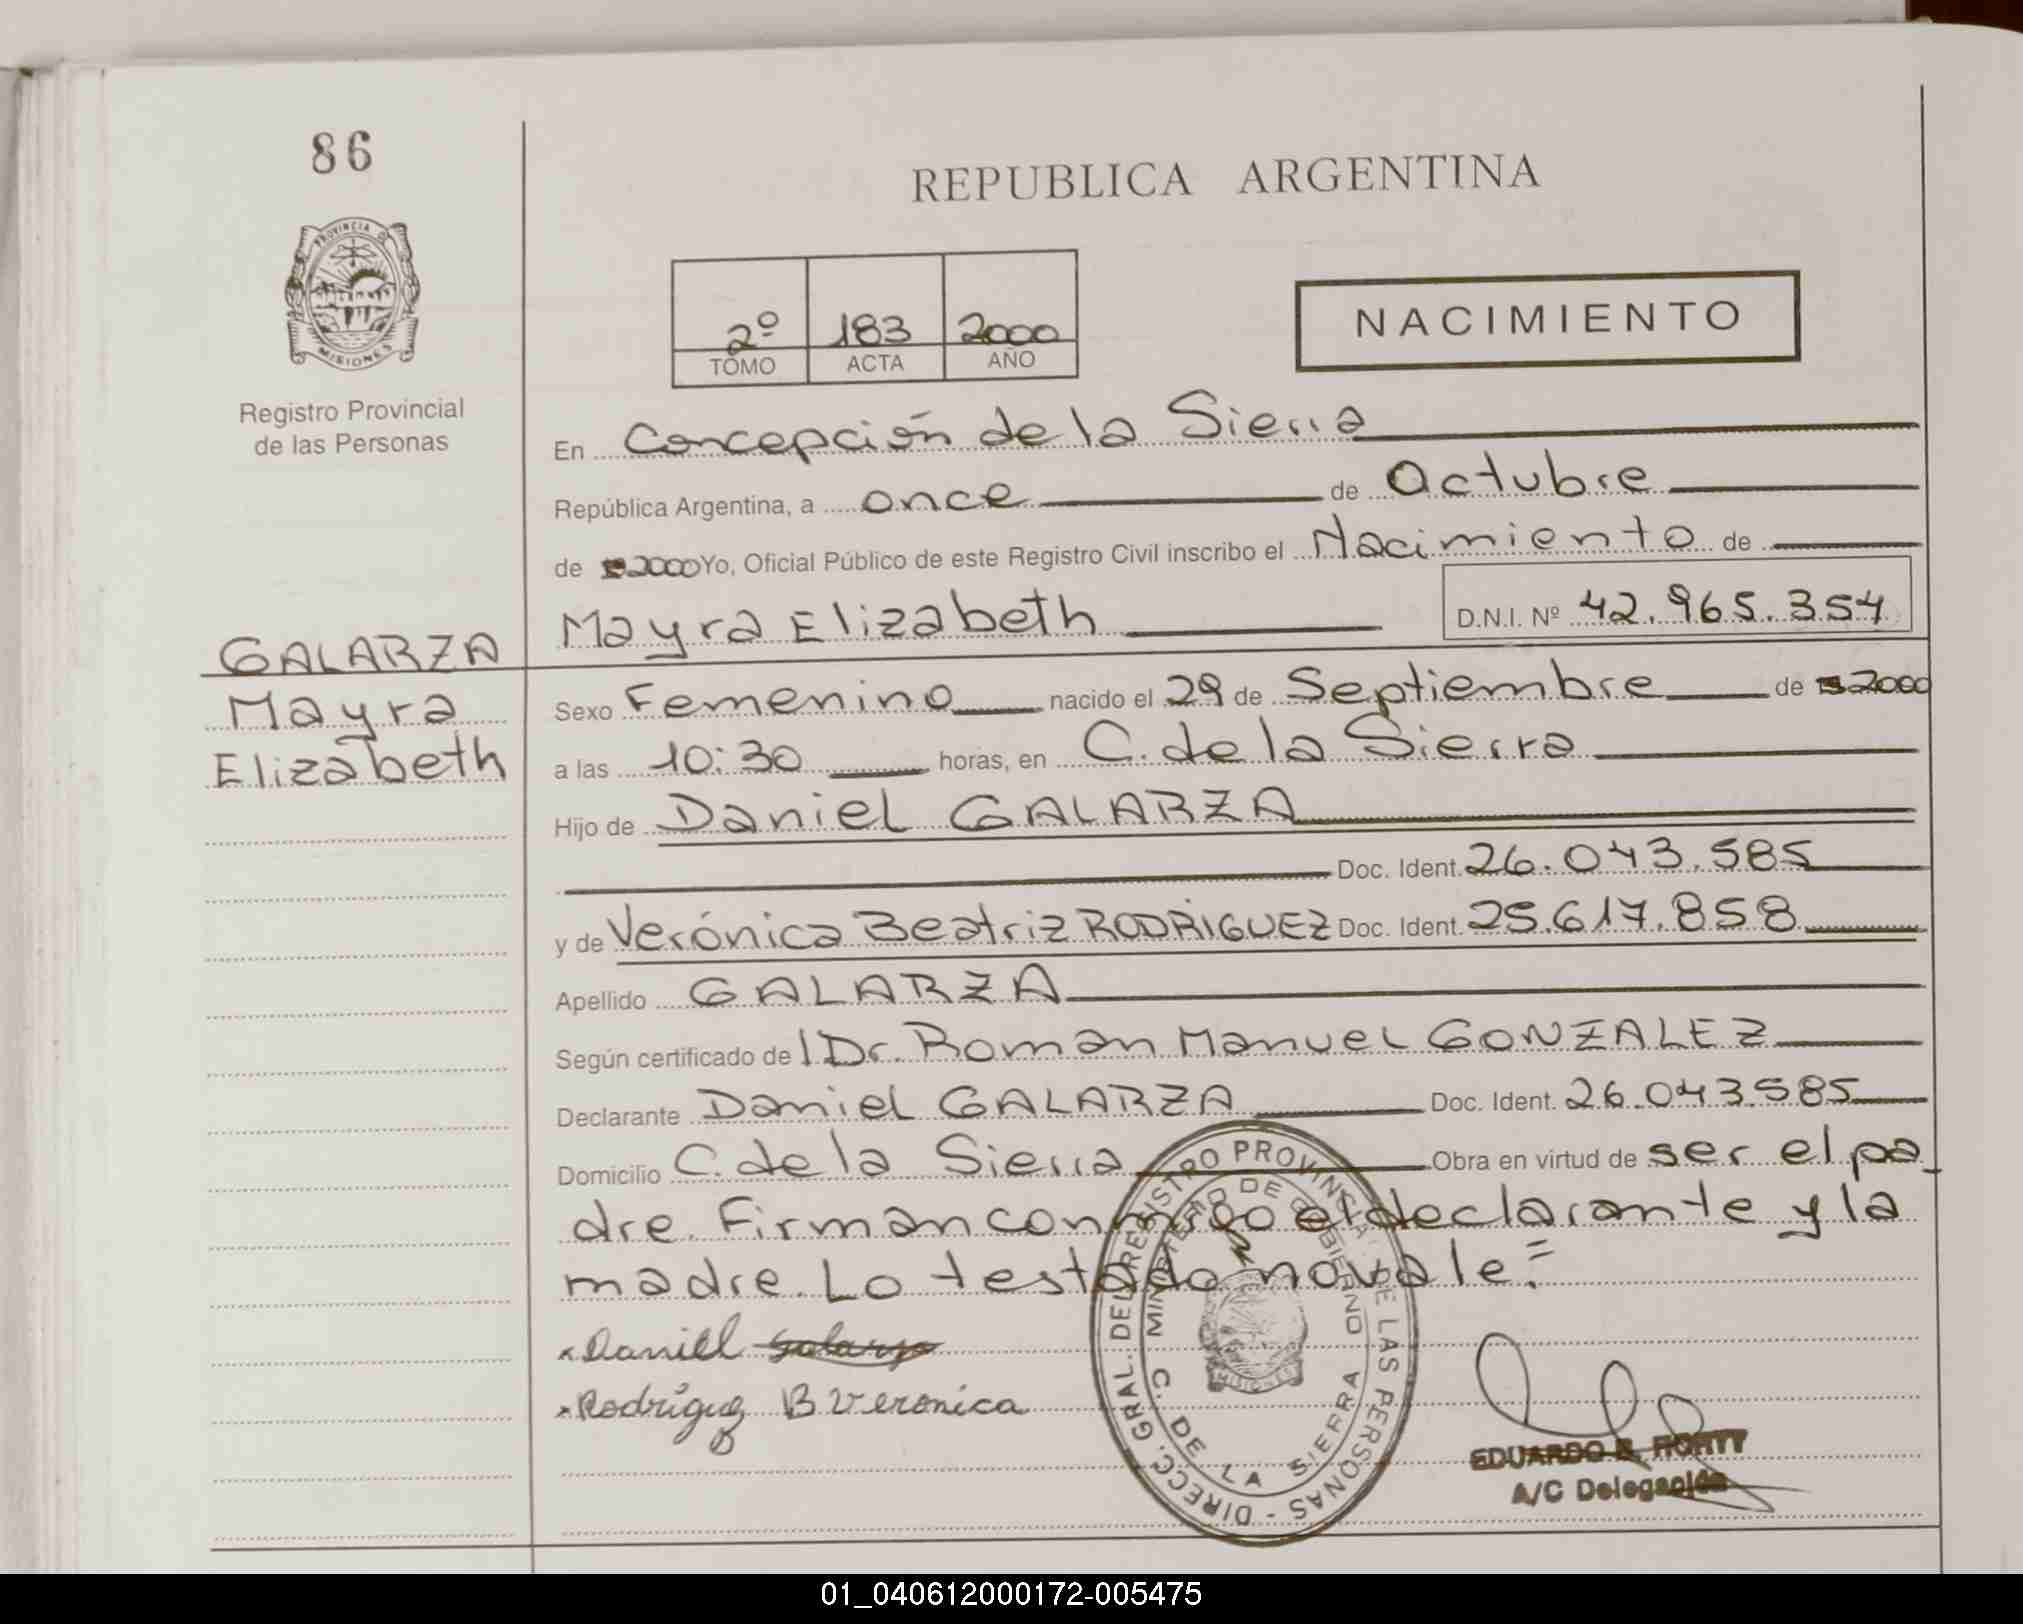 86
REPUBLICA ARGENTINA
PROVINCIA D
MISIONES
Registro Provincial
de las Personas
2º 183 2000
TOMO ACTA AÑO
NACIMIENTO
En Concepción de la Sierra
República Argentina, a once de Octubre
de 2000 Yo, Oficial Público de este Registro Civil inscribo el Nacimiento de
Mayra Elizabeth D.N.I. Nº 42.965.354
GALARZA
Mayra
Elizabeth
Sexo Femenino nacido el 29 de Septiembre de 2000
a las 10:30 horas, en C. de la Sierra
Hijo de Daniel GALARZA
Doc. Ident. 26.043.585
y de Verónica Beatriz RODRIGUEZ Doc. Ident. 25.617.858
Apellido GALARZA
Según certificado del Dr. Roman Manuel GONZALEZ
Declarante Daniel GALARZA Doc. Ident. 26.043.585
Domicilio C. de la Sierra Obra en virtud de ser el pa_
dre. Firman conmigo el declarante y la
madre. Lo testado no vale.=
x Daniel Galarza
x Rodríguez B Veronica
DIRECC. GRAL. DEL REGISTRO PROVINCIAL DE LAS PERSONAS -
MINISTERIO DE GOBIERNO
C. DE LA SIERRA
MISIONES
EDUARDO
A/C Delegación
01_040612000172-005475